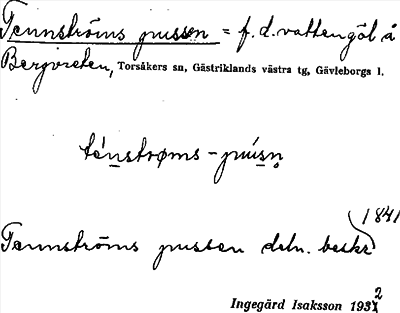 Tennströms pussen = f. d. vattengöl å
Bergvreten, Torsåkers sn, Gästriklands västra tg, Gävleborgs l.
té́nstrøms-pú́sn̥
1841
Tennströms pussen deln. beskr
Ingegärd Isaksson 1932